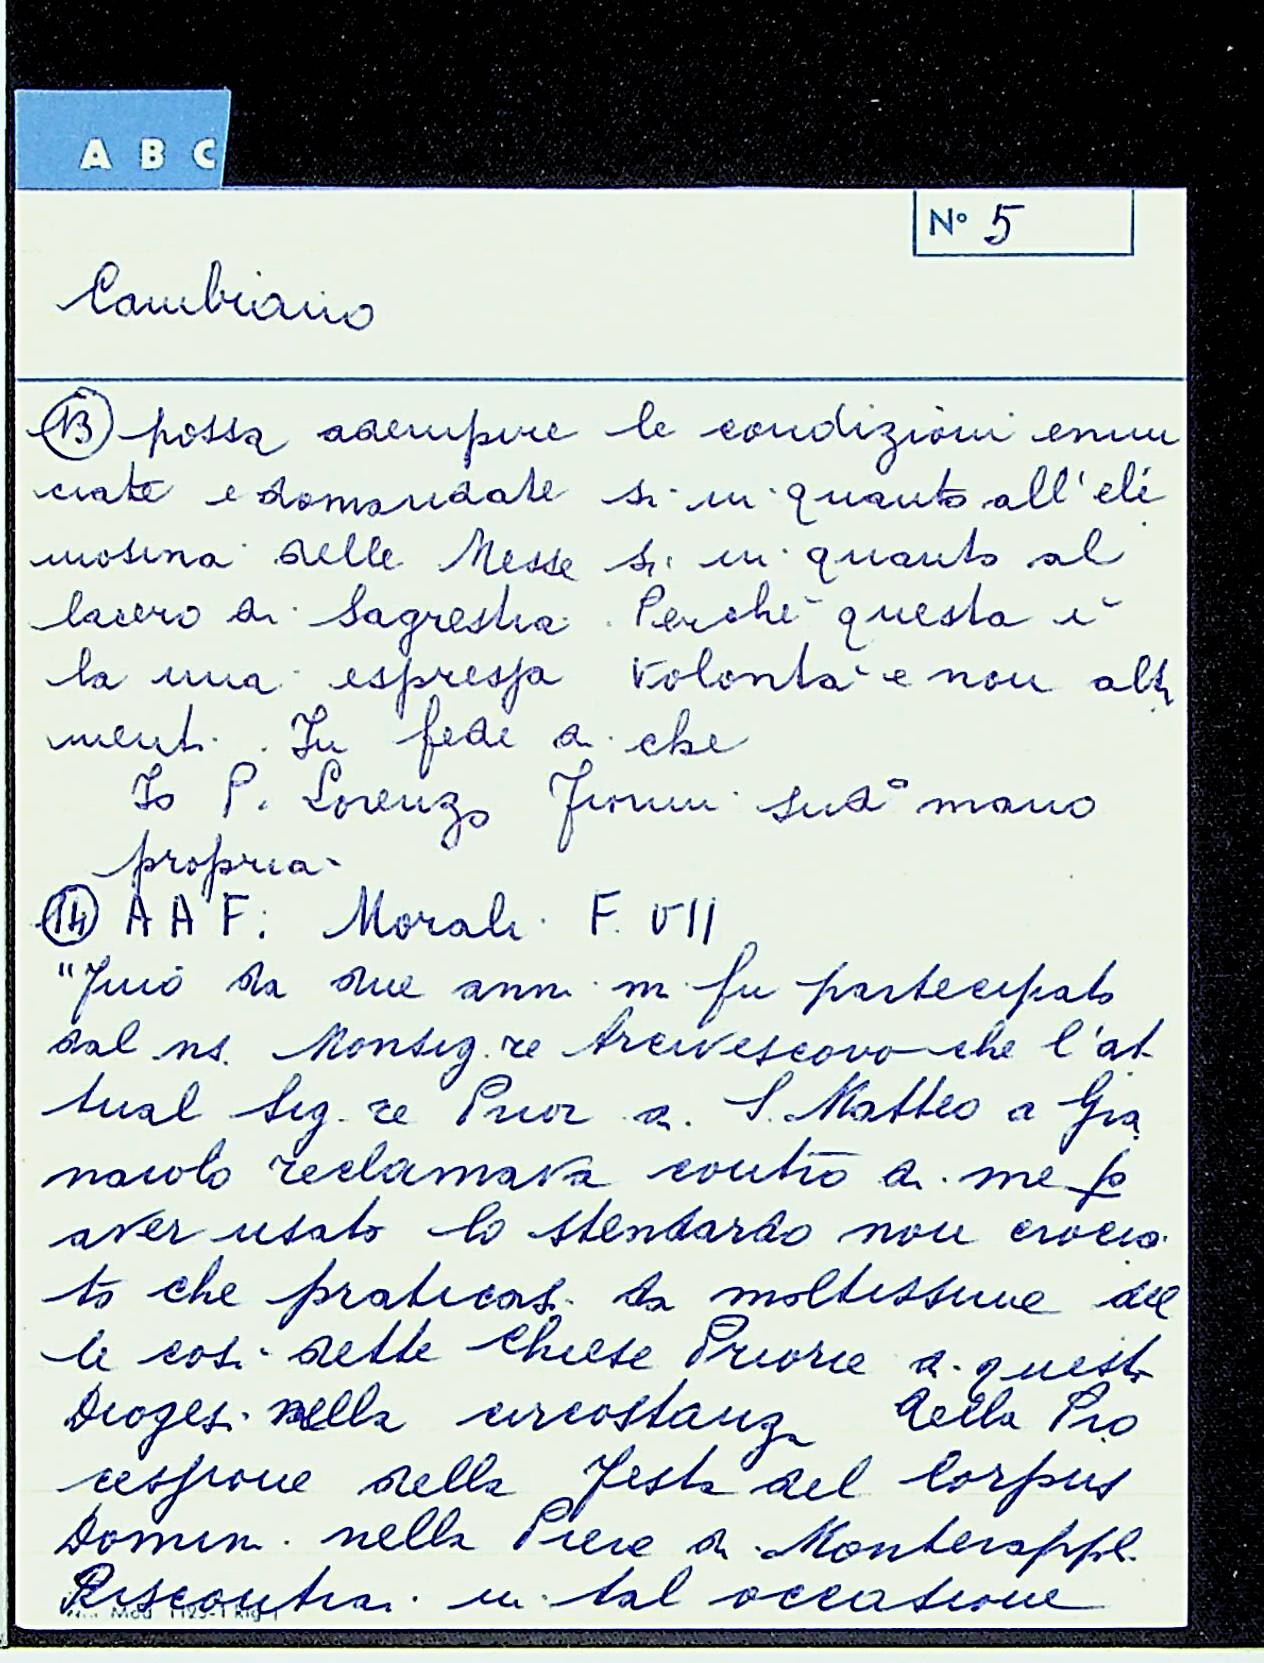 A B C
N° 5
Cambiano
(13) possa adempire le condizioni enun
ciate e domandate si in quanto all'eli
mosina delle Messe si in quanto al
lacero di Sagrestia. Perchè questa è
la mia espressa volontà e non altri
menti. In fede di che
Io P. Lorenzo sud° mano
propria
(14) A A F: Morali F. VII
"Fino da due anni mi fu partecipato
dal ns. Monsig.re Arcivescovo che l'at
tual Sig.re Prior di S. Matteo a Gra
naiolo reclamava contro di me p
aver usato lo stendardo non crocia
to che praticasi da moltissime del
le così dette Chiese Priorie di questa
Diogesi nella circostanza della Pro
cessione della Festa del Corpus
Domini nella Pieve di Monterappoli.
Riscontrai in tal occasione
Mod. 1125-1 Rig.